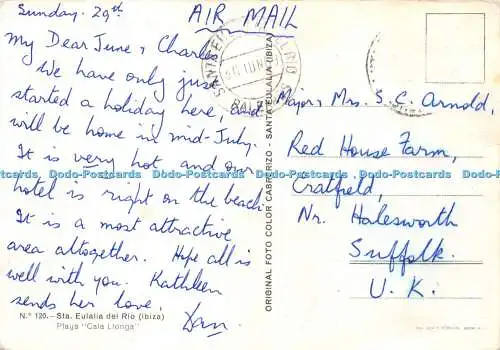 Sunday. 29th
AIR MAIL
My Dear June & Charles
We have only just
started a holiday here, and
will be home in mid-July.
It is very hot and our
hotel is right on the beach.
It is a most attractive
area altogether. Hope all is
well with you. Kathleen
sends her love,
Dan.
N.º 120.- Sta. Eulalia del Rio (Ibiza)
Playa "Cala Llonga"
ORIGINAL FOTO COLOR CASA RIZO - SANTA EULALIA (IBIZA)
Major & Mrs. S. C. Arnold,
Red House Farm,
Cratfield,
Nr. Halesworth
Suffolk.
U. K.
Dodo-Postcards Dodo-Postcards Dodo-Postcards Dodo-Postcards Dodo-Postcards Dodo-Postcards
Dodo-Postcards Dodo-Postcards Dodo-Postcards Dodo-Postcards Dodo-Postcards Dodo-Postcards